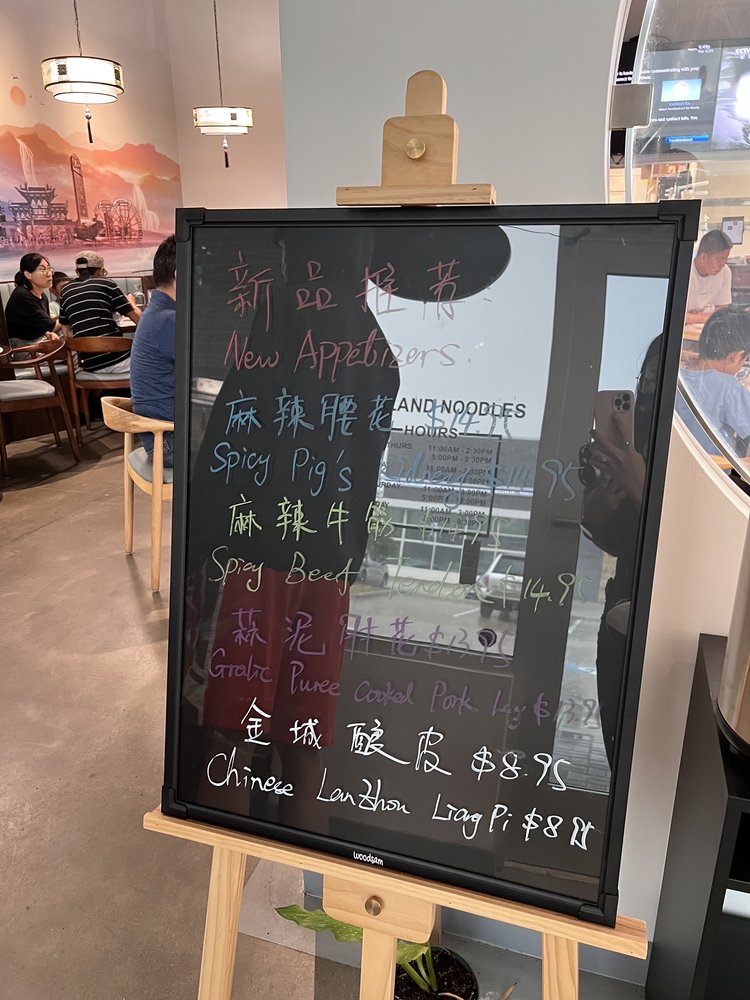 新品推荐.
New Appetizers.
麻辣腰花 $14.95
Spicy Pig's Kidney $14.95
麻辣牛筋 $14.95
Spicy Beef Tendon $14.95
蒜泥肘花 $13.95
Gralic Puree Cooked Pork Leg $13.95
金城酿皮 $8.95
Chinese LanZhou Liang Pi $8.95
woodsam
LAND NOODLES
HOURS
11:00AM - 2:30PM
5:00PM - 9:30PM
Contact Us
Troubleshoot